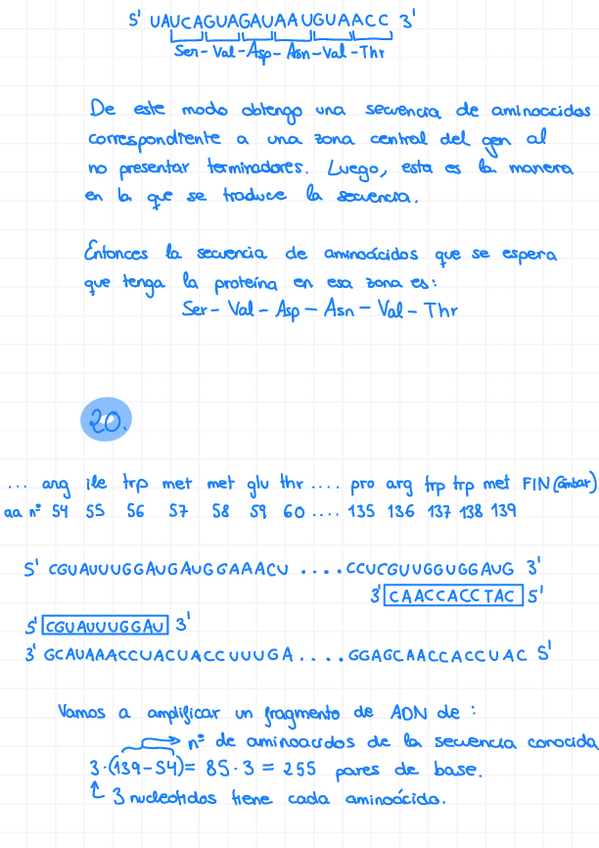 5' UAUCAGUAGAUAAUGUAACC 3'
Ser - Val - Asp - Asn - Val - Thr
De este modo obtengo una secuencia de aminoácidos
correspondiente a una zona central del gen al
no presentar terminadores. Luego, esta es la manera
en la que se traduce la secuencia.
Entonces la secuencia de aminoácidos que se espera
que tenga la proteína en esa zona es:
Ser - Val - Asp - Asn - Val - Thr
20.
... arg ile trp met met glu thr .... pro arg trp trp met FIN (ámbar)
aa nº 54 55 56 57 58 59 60 .... 135 136 137 138 139
5' CGUAUUUGGAUGAUGGAAACU .... CCUCGUUGGUGGAUG 3'
3' CAACCACCTAC 5'
5' CGUAUUUGGAU 3'
3' GCAUAAACCUACUACCUUUGA .... GGAGCAACCACCUAC 5'
Vamos a amplificar un fragmento de ADN de:
nº de aminoácidos de la secuencia conocida
3·(139-54) = 85·3 = 255 pares de base.
3 nucleótidos tiene cada aminoácido.